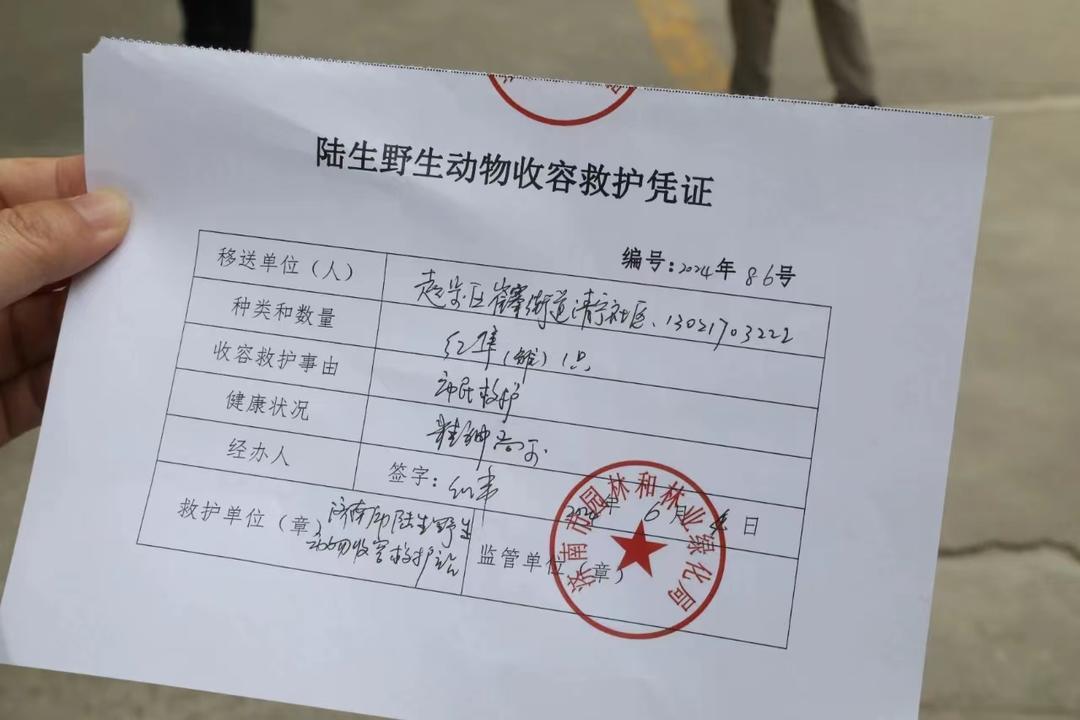 陆生野生动物收容救护凭证
编号：2024年 86号
移送单位（人） 起步区崔寨街道清宁社区、13021703222
种类和数量 红隼（雏）1只
收容救护事由 市民救护
健康状况 精神尚可
经办人 签字： 2024年 6月 日
救护单位（章） 济南市陆生野生
动物收容救护站 监管单位（章）
济南市园林和林业绿化局